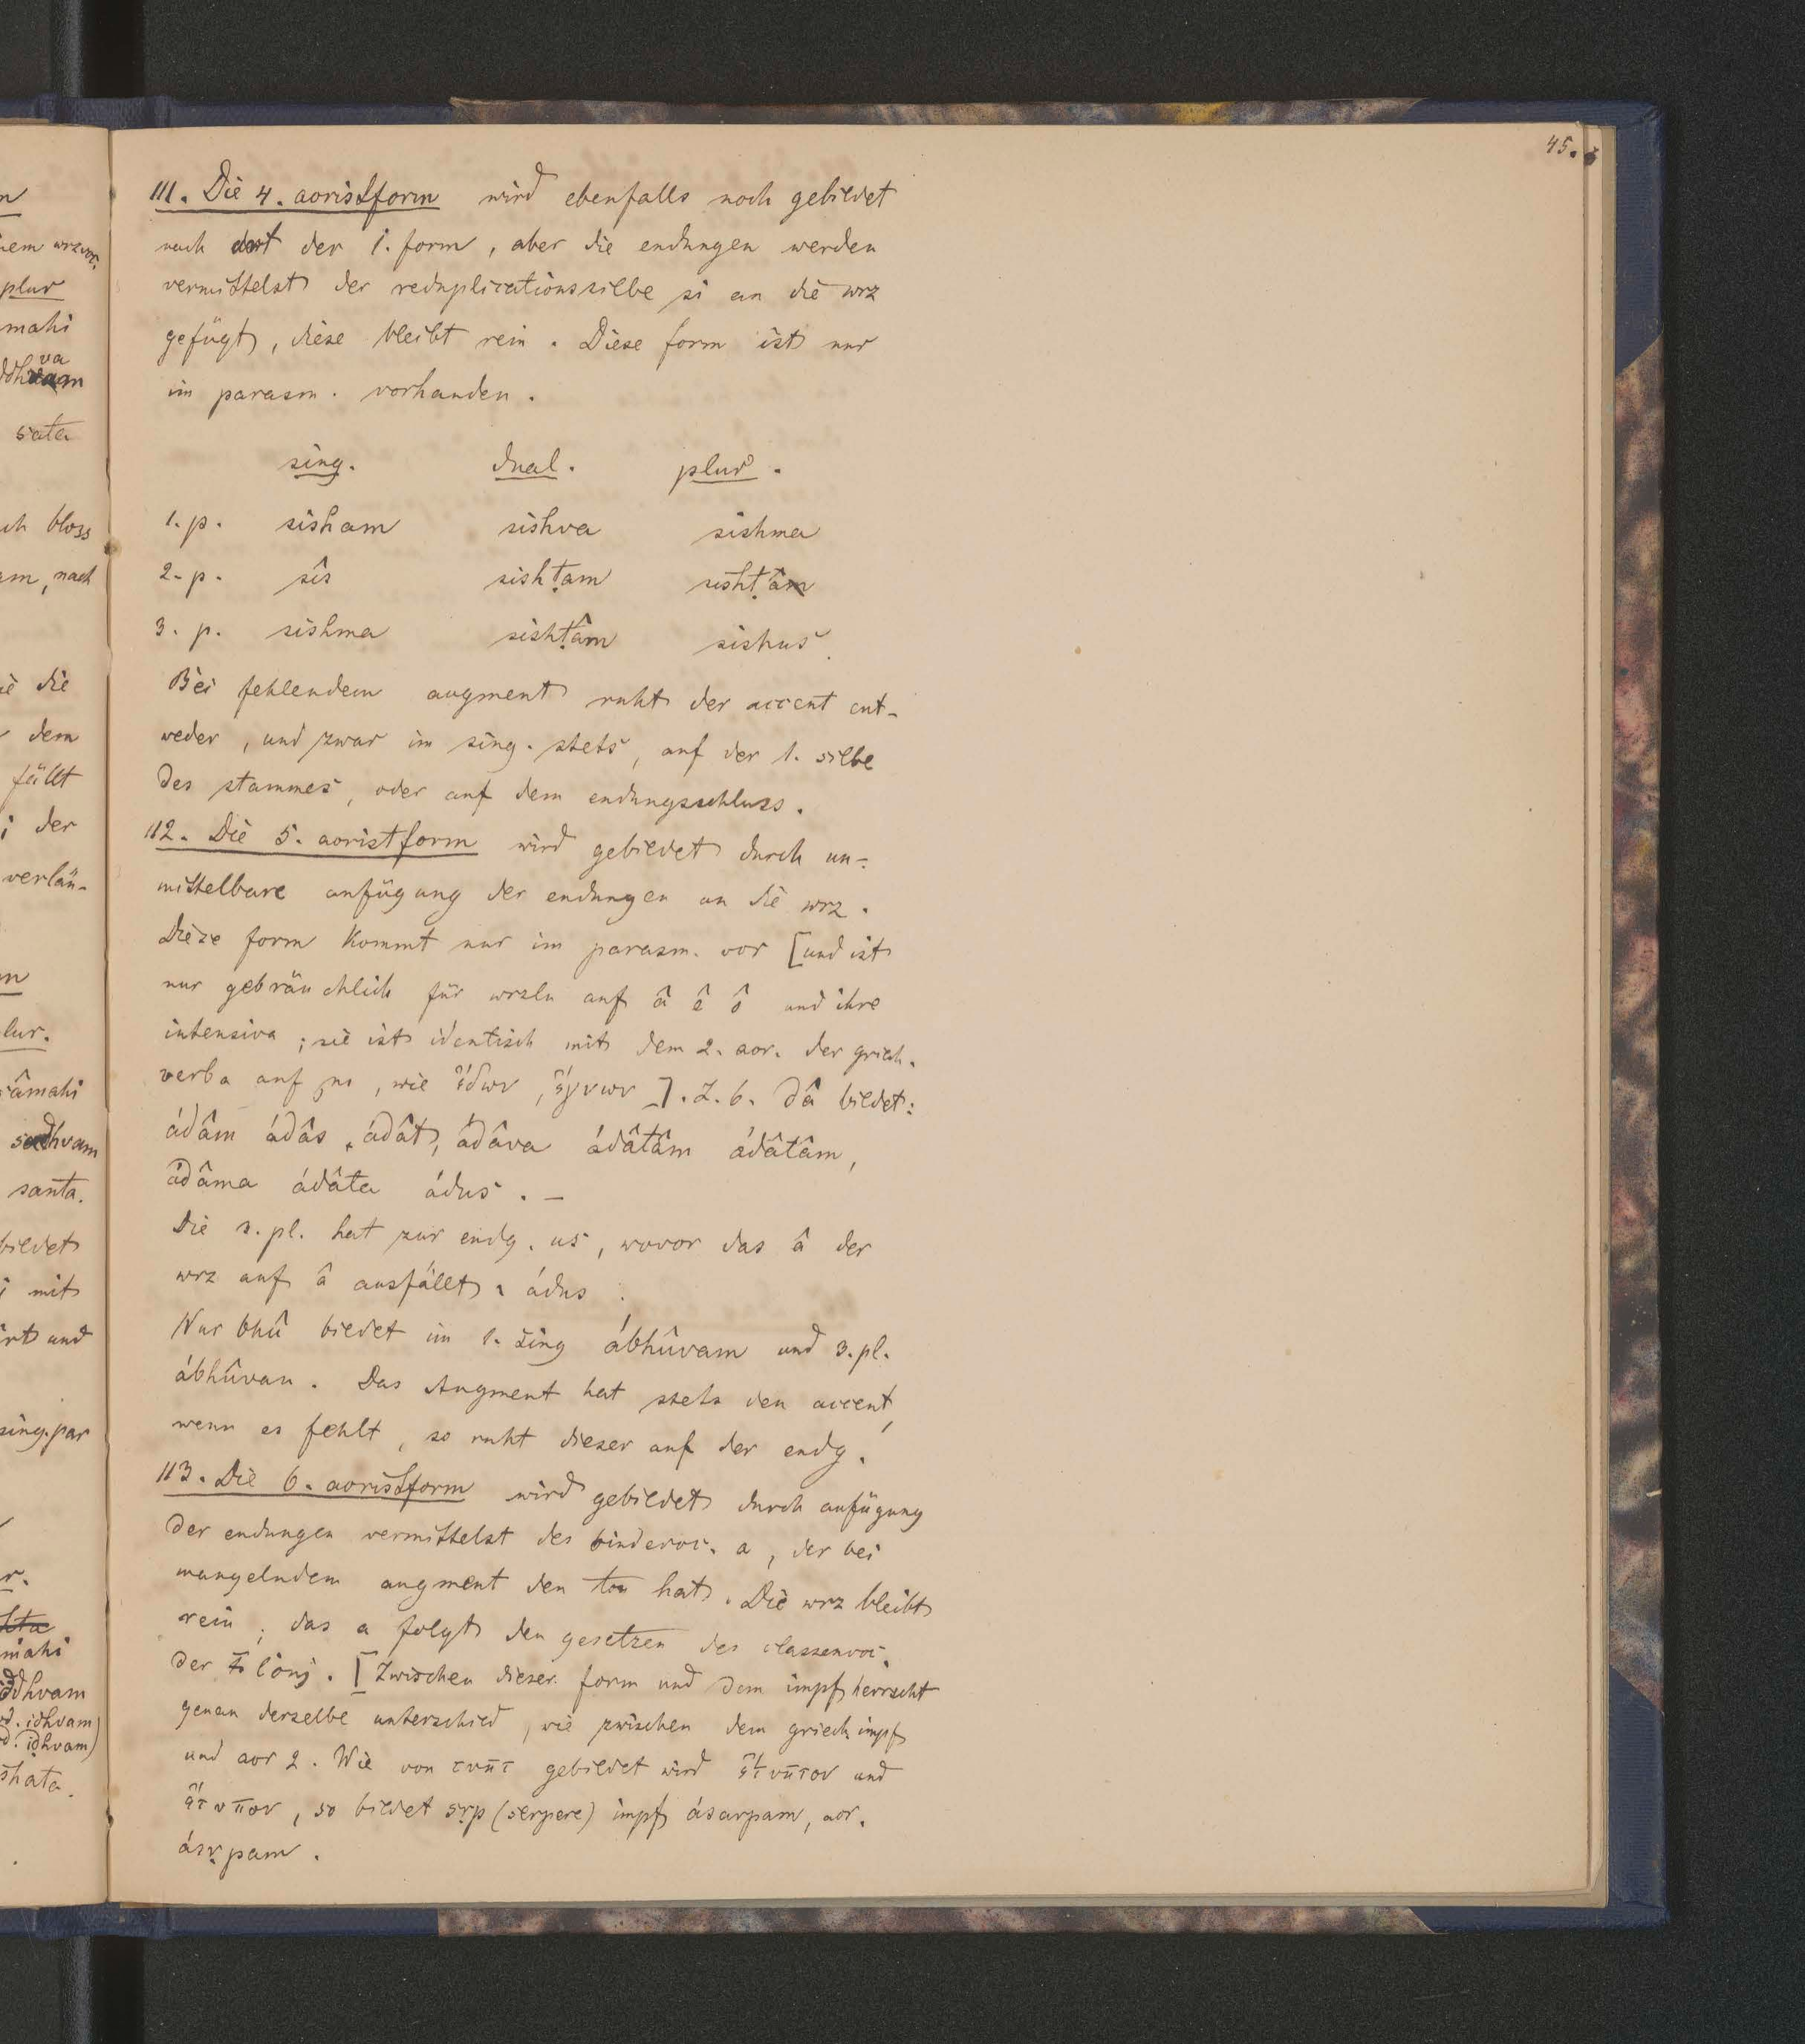 45.
111. Die 4. aoristform wird ebenfalls noch gebildet
nach art der 1. form, aber die endungen werden
vermittelst der reduplicationssilbe si an die wrz
gefügt, diese bleibt rein. Diese form ist nur
im parasm. vorhanden.
sing. dual. plur.
1. p. sisham sishva sishma
2. p. sîs sishṭam sishṭa
3. p. sishma sishṭâm sishus
Bei fehlendem augment ruht der accent ent-
weder, und zwar im sing. stets, auf der 1. silbe
des stammes, oder auf dem endungsschluss.
112. Die 5. aoristform wird gebildet durch un-
mittelbare anfügung der endungen an die wrz.
Diese form kommt nur im parasm. vor [und ist
nur gebräuchlich für wrzln auf â ê ô und ihre
intensiva; sie ist identisch mit dem 2. aor. der griech.
verba auf μι, wie ἔδων, ἔγνων]. Z. b. dâ bildet:
ádâm ádâs ádât, ádâva ádâtâm ádâtâm,
ádâma ádâta ádus. –
Die 3. pl. hat zur endg. us, wovor das â der
wrz auf â ausfällt: ádus.
Nur bhû bildet im 1. sing ábhûvam und 3. pl.
ábhûvan. Das Augment hat stets den accent,
wenn es fehlt, so ruht dieser auf der endg.
113. Die 6. aoristform wird gebildet durch anfügung
der endungen vermittelst des bindevoc. a, der bei
mangelndem augment den ton hat. Die wrz bleibt
rein; das a folgt den gesetzen des classenvoc.
der 1 conj. [Zwischen dieser form und dem impf herrscht
genau derselbe unterschied, wie zwischen dem griech impf
und aor 2. Wie von τυπτ gebildet wird ἔτυπτον und
ἔτυπον, so bildet sṛp (serpere) impf ásarpam, aor.
ásṛpam.